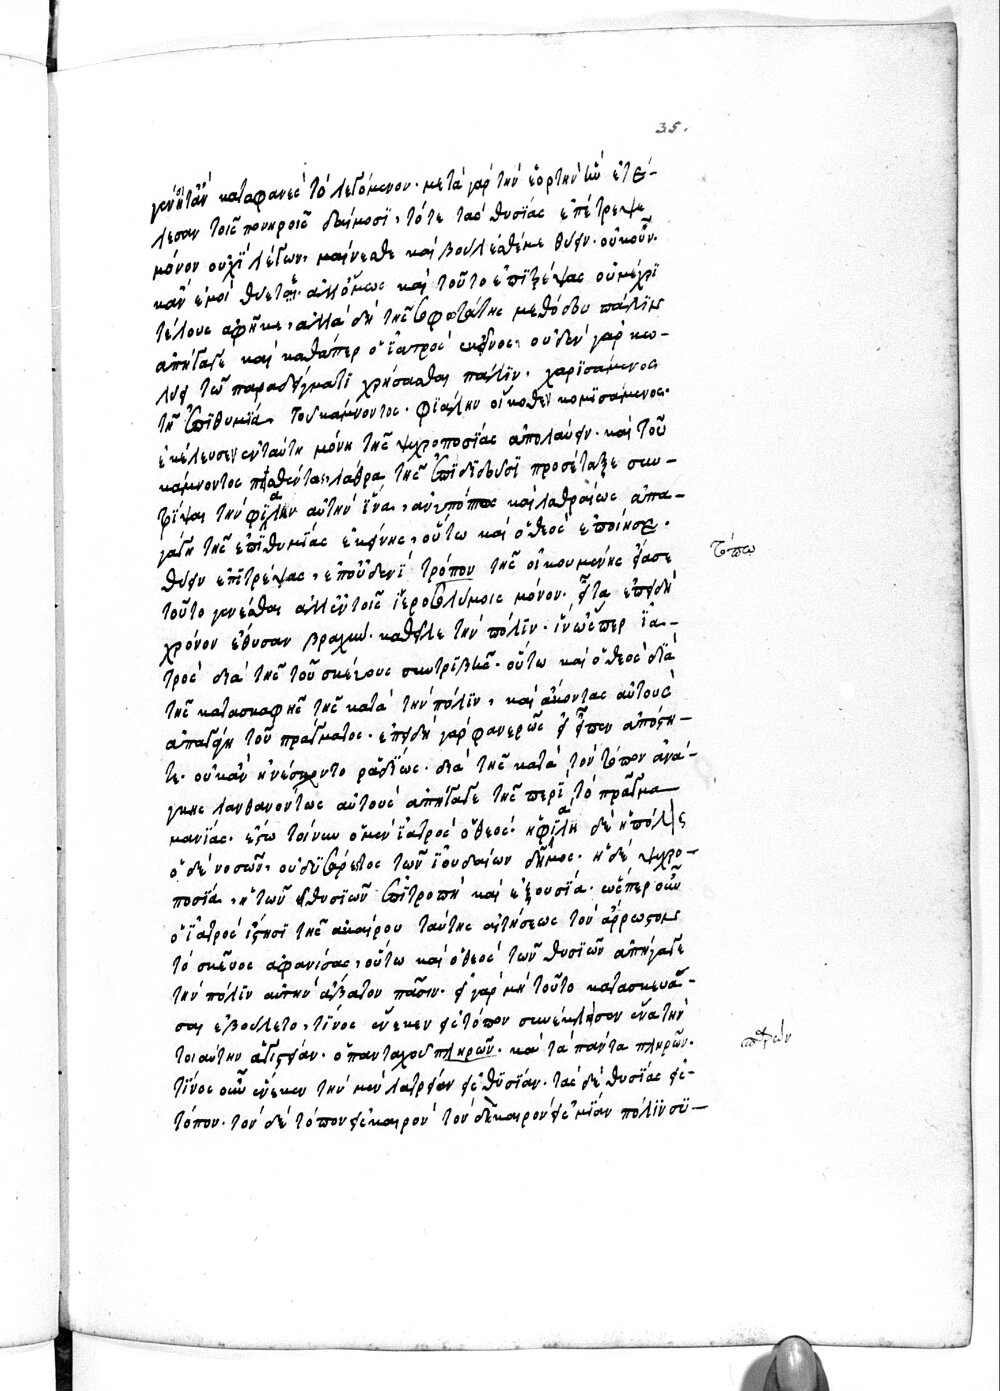 35.
γένηταν καταφανὲς τὸ λεγόμενον· μετὰ γὰρ τὴν ἑορτὴν ὧν ἐτέ-
λεσαν τοῖς πονηροῖς δαίμοσϊ, τότε τὰς θυσίας ἐπέτρεψε
μόνον ουχῒ λέγων, μαίνεσθε καὶ βούλεσθέ με θύειν· οὐκοῦν
κἂν ἐμοὶ θύετε· ἀλλ' ὅμως καὶ τοῦτο ἐπϊτρέψας οὐ μέχρϊ
τέλους ἀφῆκε, ἀλλὰ δὴ τῆς σοφωτάτης μεθόδου πάλϊν
ἀπήγαγε καὶ καθάπερ ὁ ϊατρὸς ἐκεῖνος, οὐδὲν γὰρ κω-
λύει τῶ παραδείγματϊ χρήσασθαι πάλϊν, χαρϊσάμενος
τῆ ἐπϊθυμϊα τοῦ κάμνοντος· φϊάλην οἴκοθεν κομϊσάμενος
ἐκέλευσεν ἐν ταύτη μόνη τῆς ψυχροποσϊας ἀπολαύειν· καὶ τοῦ
κάμνοντος πεισθέντος, λάθρα τῆς ἐπϊδϊδοῦσϊ προσέταξε συν-
τρῖψαι τὴν φϊάλην αὐτὴν ἵνα, ἀνυπόπτως καὶ λαθραίως ἀπα-
γάγη τῆς ἐπϊθυμϊας ἐκεῖνης, οὕτω καὶ ὁ θεὸς ἐποίησε·
θύειν ἐπϊτρέψας, ἐπ' οὐδενϊ τρόπον τῆς οἰκουμένης εἴασε
τοῦτο γενέσθαι ἀλλ' ἐν τοῖς ϊεροσολύμοις μόνον· εἶτα ἐπειδὴ
χρόνον ἔθυσαν βραχὺν· καθεῖλε τὴν πόλϊν· ἵν' ὥσπερ ϊα-
τρὸς διὰ τῆς τοῦ σκεύους συντρϊβῆς· οὕτω καὶ ὁ θεὸς διὰ
τῆς κατασκαφῆς τῆς κατὰ τὴν πόλϊν, καὶ ἄκοντας αὐτοὺς
ἀπαγάγη τοῦ πράγματος· ἐπειδὴ γὰρ φανερῶς εἰ εἶπεν ἀπόστη-
τε· οὐκ ἂν ἠνέσχοντο ραδϊως· διὰ τῆς κατὰ τὸν τόπον ἀνά-
γκης λανθανόντως αὐτοὺς ἀπήγαγε τῆς περὶ τὸ πρᾶγμα
μανϊας· ἔστω τοίνυν ὁ μὲν ϊατρὸς ὁ θεὸς· ἡ φϊάλη δὲ ἡ πόλϊς
ὁ δὲ νοσῶν, ὁ δύσάρεστος τῶν ϊουδαίων δῆμος· ἡ δὲ ψυχρο-
ποσϊα, ἡ τῶν θυσϊῶν ἐπϊτροπὴ καὶ ἐξουσϊα· ὥσπερ οὖν
ὁ ϊατρὸς ἵστησϊ τῆς ἀκαίρου ταύτης αἰτήσεως τὸν ἄρρωστον
τὸ σκεῦος ἀφανϊσας, οὕτω καὶ ὁ θεὸς τῶν θυσϊῶν ἀπήγαγε
τὴν πόλϊν αὐτὴν ἄβατον πᾶσιν· εἰ γὰρ μὴ τοῦτο κατασκευά-
σαι ἐβούλετο, τϊνος ἕνεκεν εἰς τόπον συνέκλησεν ἕνα τὴν
τοιαύτην ἁγιστείαν· ὁ πανταχοῦ πληρῶν· καὶ τὰ πάντα πληρῶν·
τϊνος οὖν ἕνεκεν τὴν μὲν λατρείαν εἰς θυσϊαν· τὰς δὲ θυσϊας εἰς
τόπον· τὸν δὲ τόπον εἰς καιρὸν· τὸν δὲ καιρὸν εἰς μϊαν πόλϊν συ-
τόπω
παρὼν